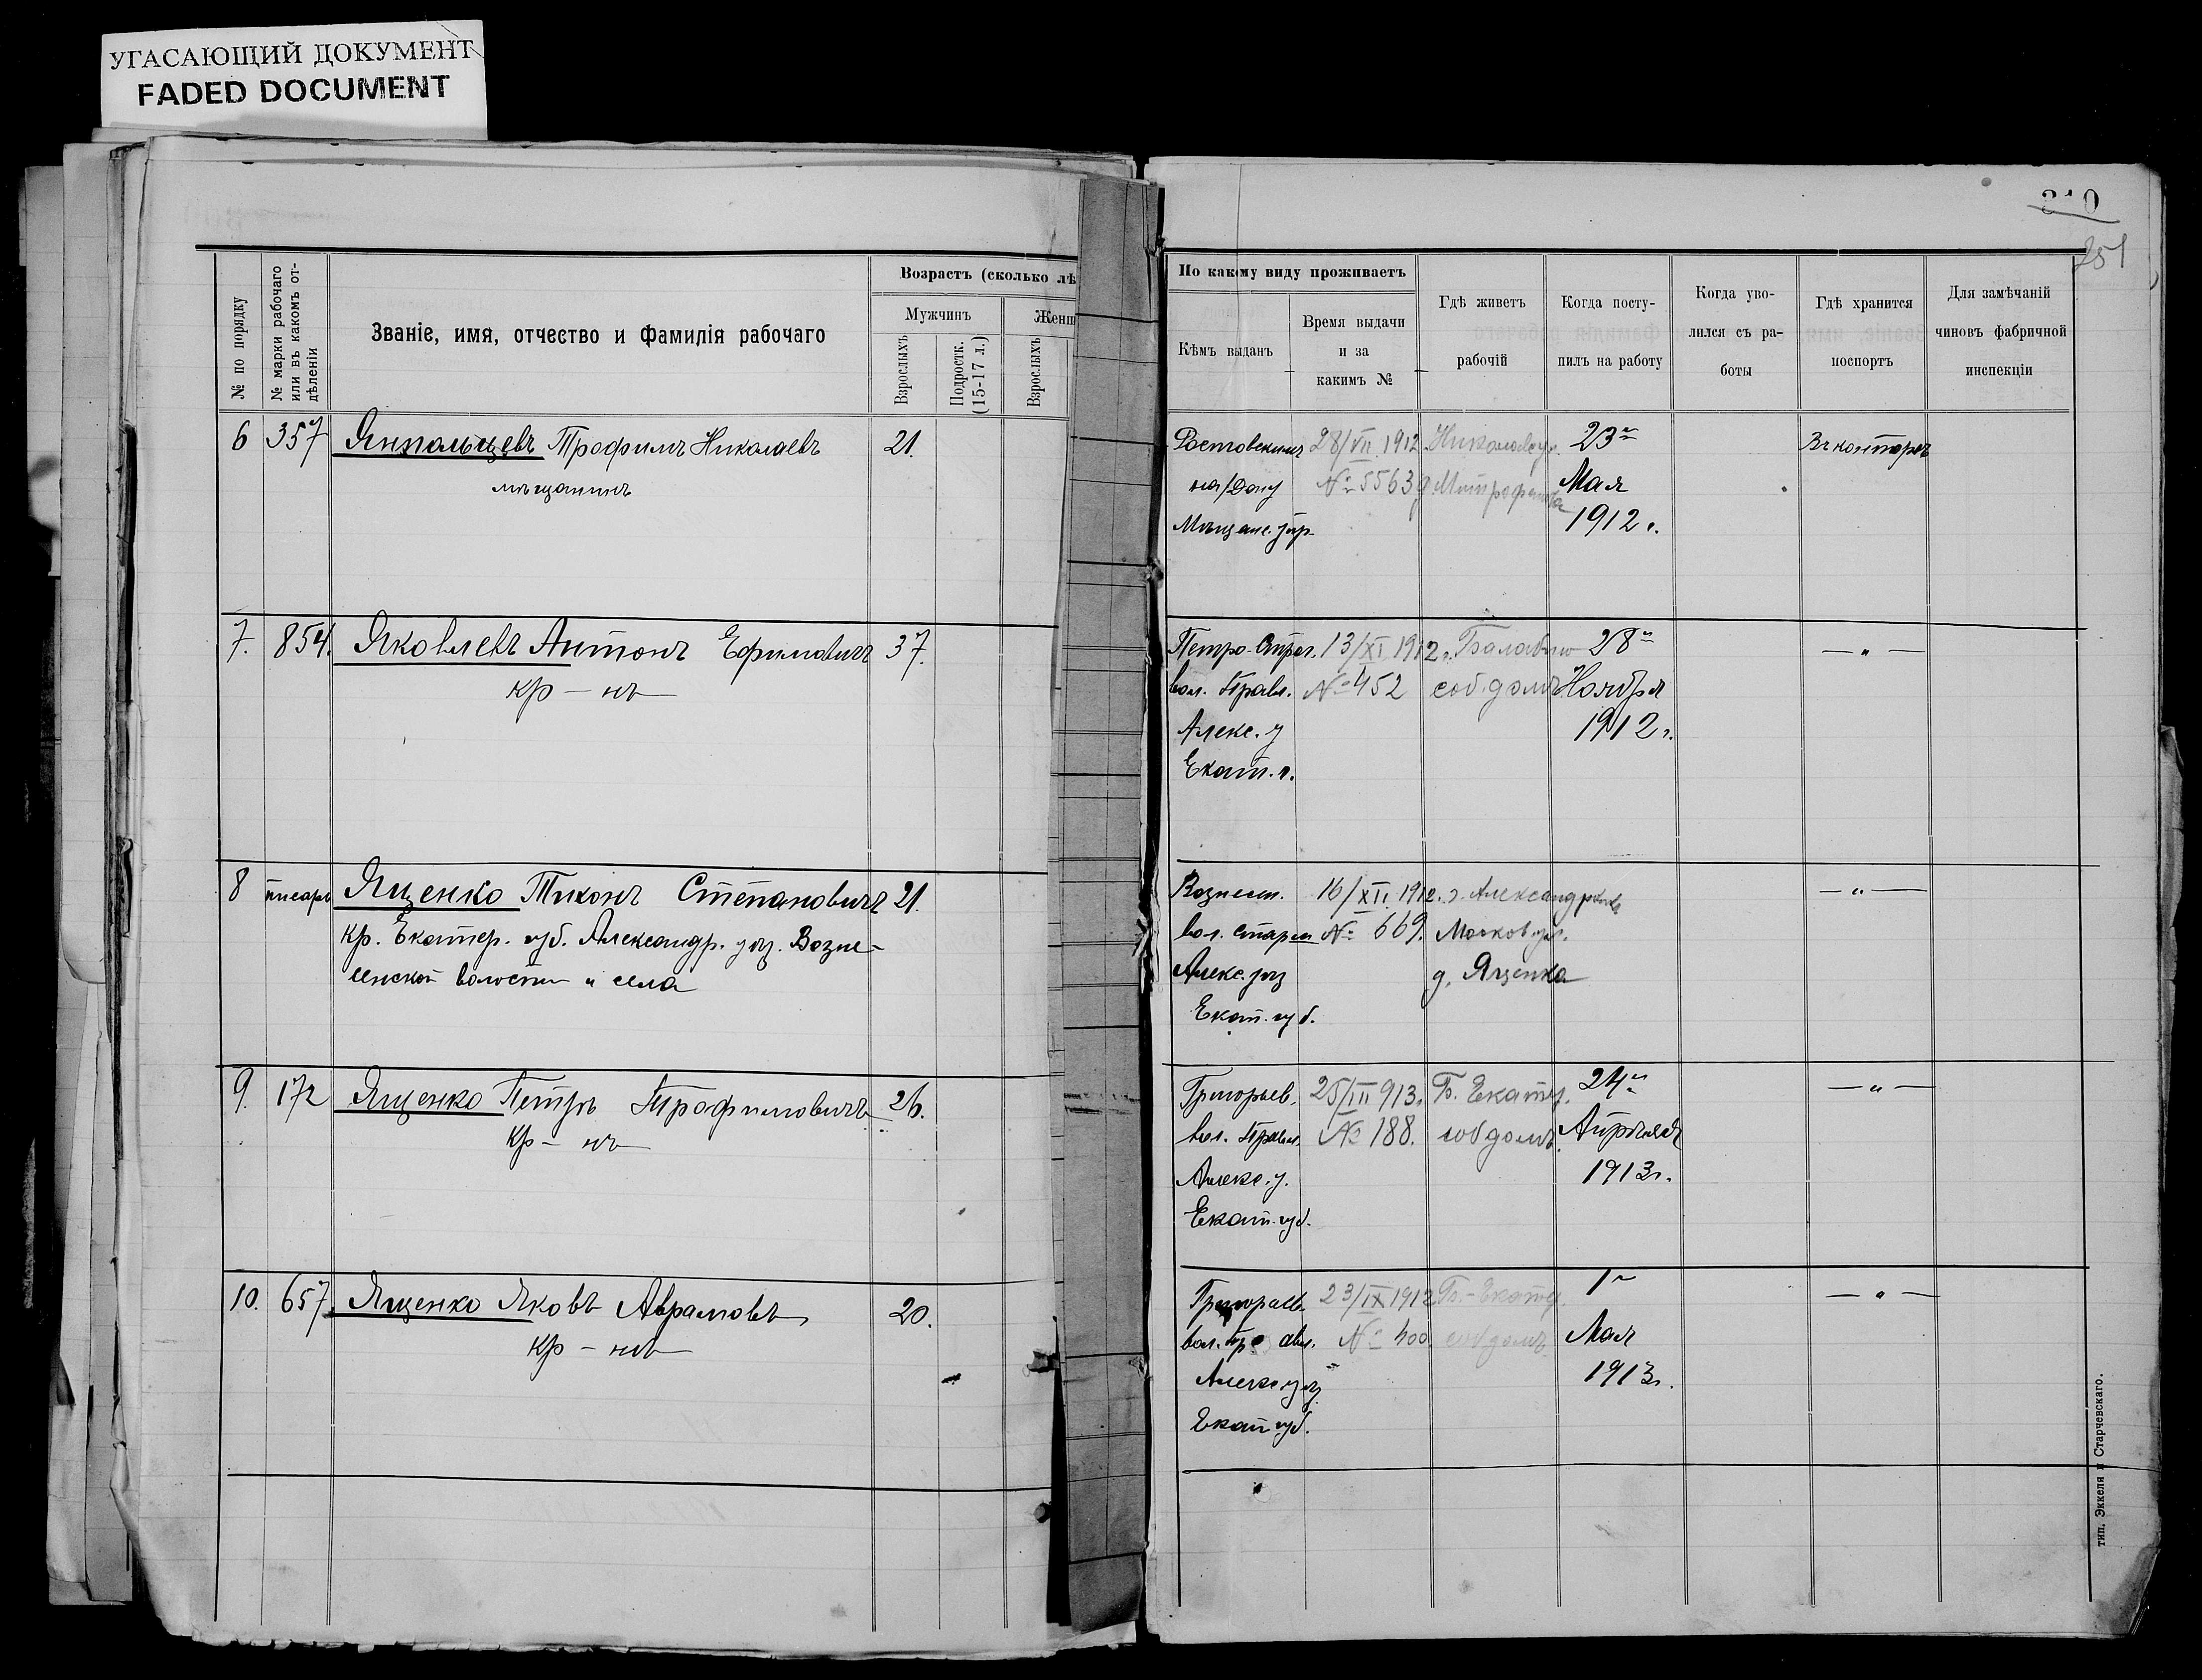 УГАСАЮЩИЙ ДОКУМЕНТ
FADED DOCUMENT
310
251
№ по порядку
№ марки рабочаго или въ какомъ отдѣленіи
Званіе, имя, отчество и фамилія рабочаго
Возрастъ (сколько лѣ
Мужчинъ
Женщ
Взрослыхъ
Подростк. (15-17 л.)
Взрослыхъ
По какому виду проживаетъ
Кѣмъ выданъ
Время выдачи и за какимъ №
Гдѣ живетъ рабочій
Когда поступилъ на работу
Когда уволился съ работы
Гдѣ хранится поспортъ
Для замѣчаній чиновъ фабричной инспекціи
6 357 Трофимъ Николаевъ 21.
мѣщанинъ
Ростовскимъ 28/VII 1912 23го Въ конторѣ
на/Дону № 5563 д. Митрофанова Мая
Мѣщанс. упр. 1912 г.
7. 854. Яковлевъ Антонъ Ефимовичъ 37.
кр-нъ
13/XI 1912 г. Балабино 28го — " —
вол. Правл. № 452 соб. домъ Ноября
Алекс. у 1912 г.
Екат. г.
8 писарь Яценко Тихонъ Степановичъ 21.
кр. Екатер. губ. Александр. уѣз. Возне-
сенской волости и села
Вознесен. 16/XII 1912. г. Александровскъ — " —
вол. старш № 669. Москов. ул.
Алекс. уѣз д. Яценко
Екат. губ.
9. 172 Яценко Петръ Трофимовичъ 26.
кр-нъ
Григорьев. 25/III 913. Б. Екатер. 24го — " —
вол. Правл. № 188. соб домъ. Апрѣля
Алекс. у. 1913 г.
Екат. губ.
10. 657. Яценко Яковъ Аврамовъ 20.
кр-нъ
Григорьев. 23/IX 1912 Б.-Екатер. 1го — " —
вол. правл. № 400. соб домъ Мая
Алекс уѣз 1913 г.
Екат губ.
тип. Эккеля и Старчевскаго.